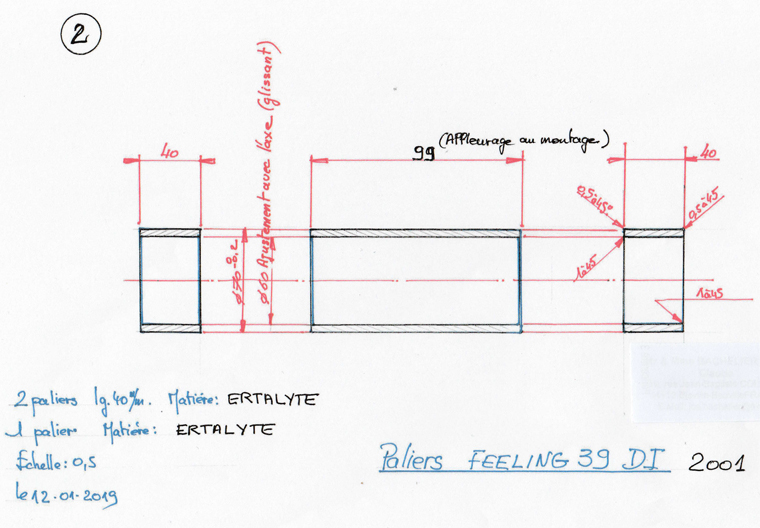 2
(Affleurage au montage.)
40
99
40
Ø60 Ajustement avec l'axe (glissant)
0,5à45°
0,5à45
1à45
1à45
2 paliers lg.40m/m. Matière: ERTALYTE
1 palier Matière: ERTALYTE
Échelle: 0,5
le 12-01-2019
Paliers FEELING 39 DI 2001